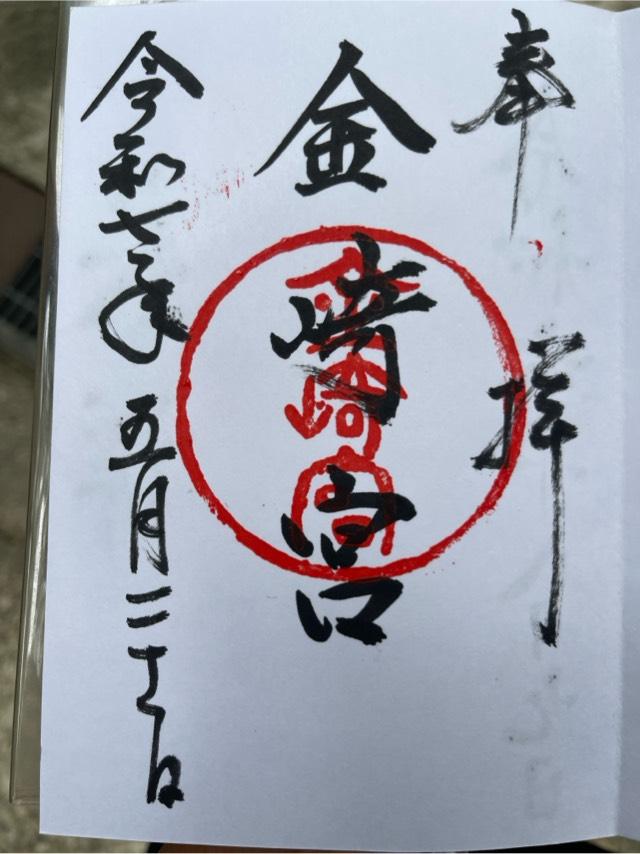 奉拝
金崎宮
金崎宮
令和七年五月二十日